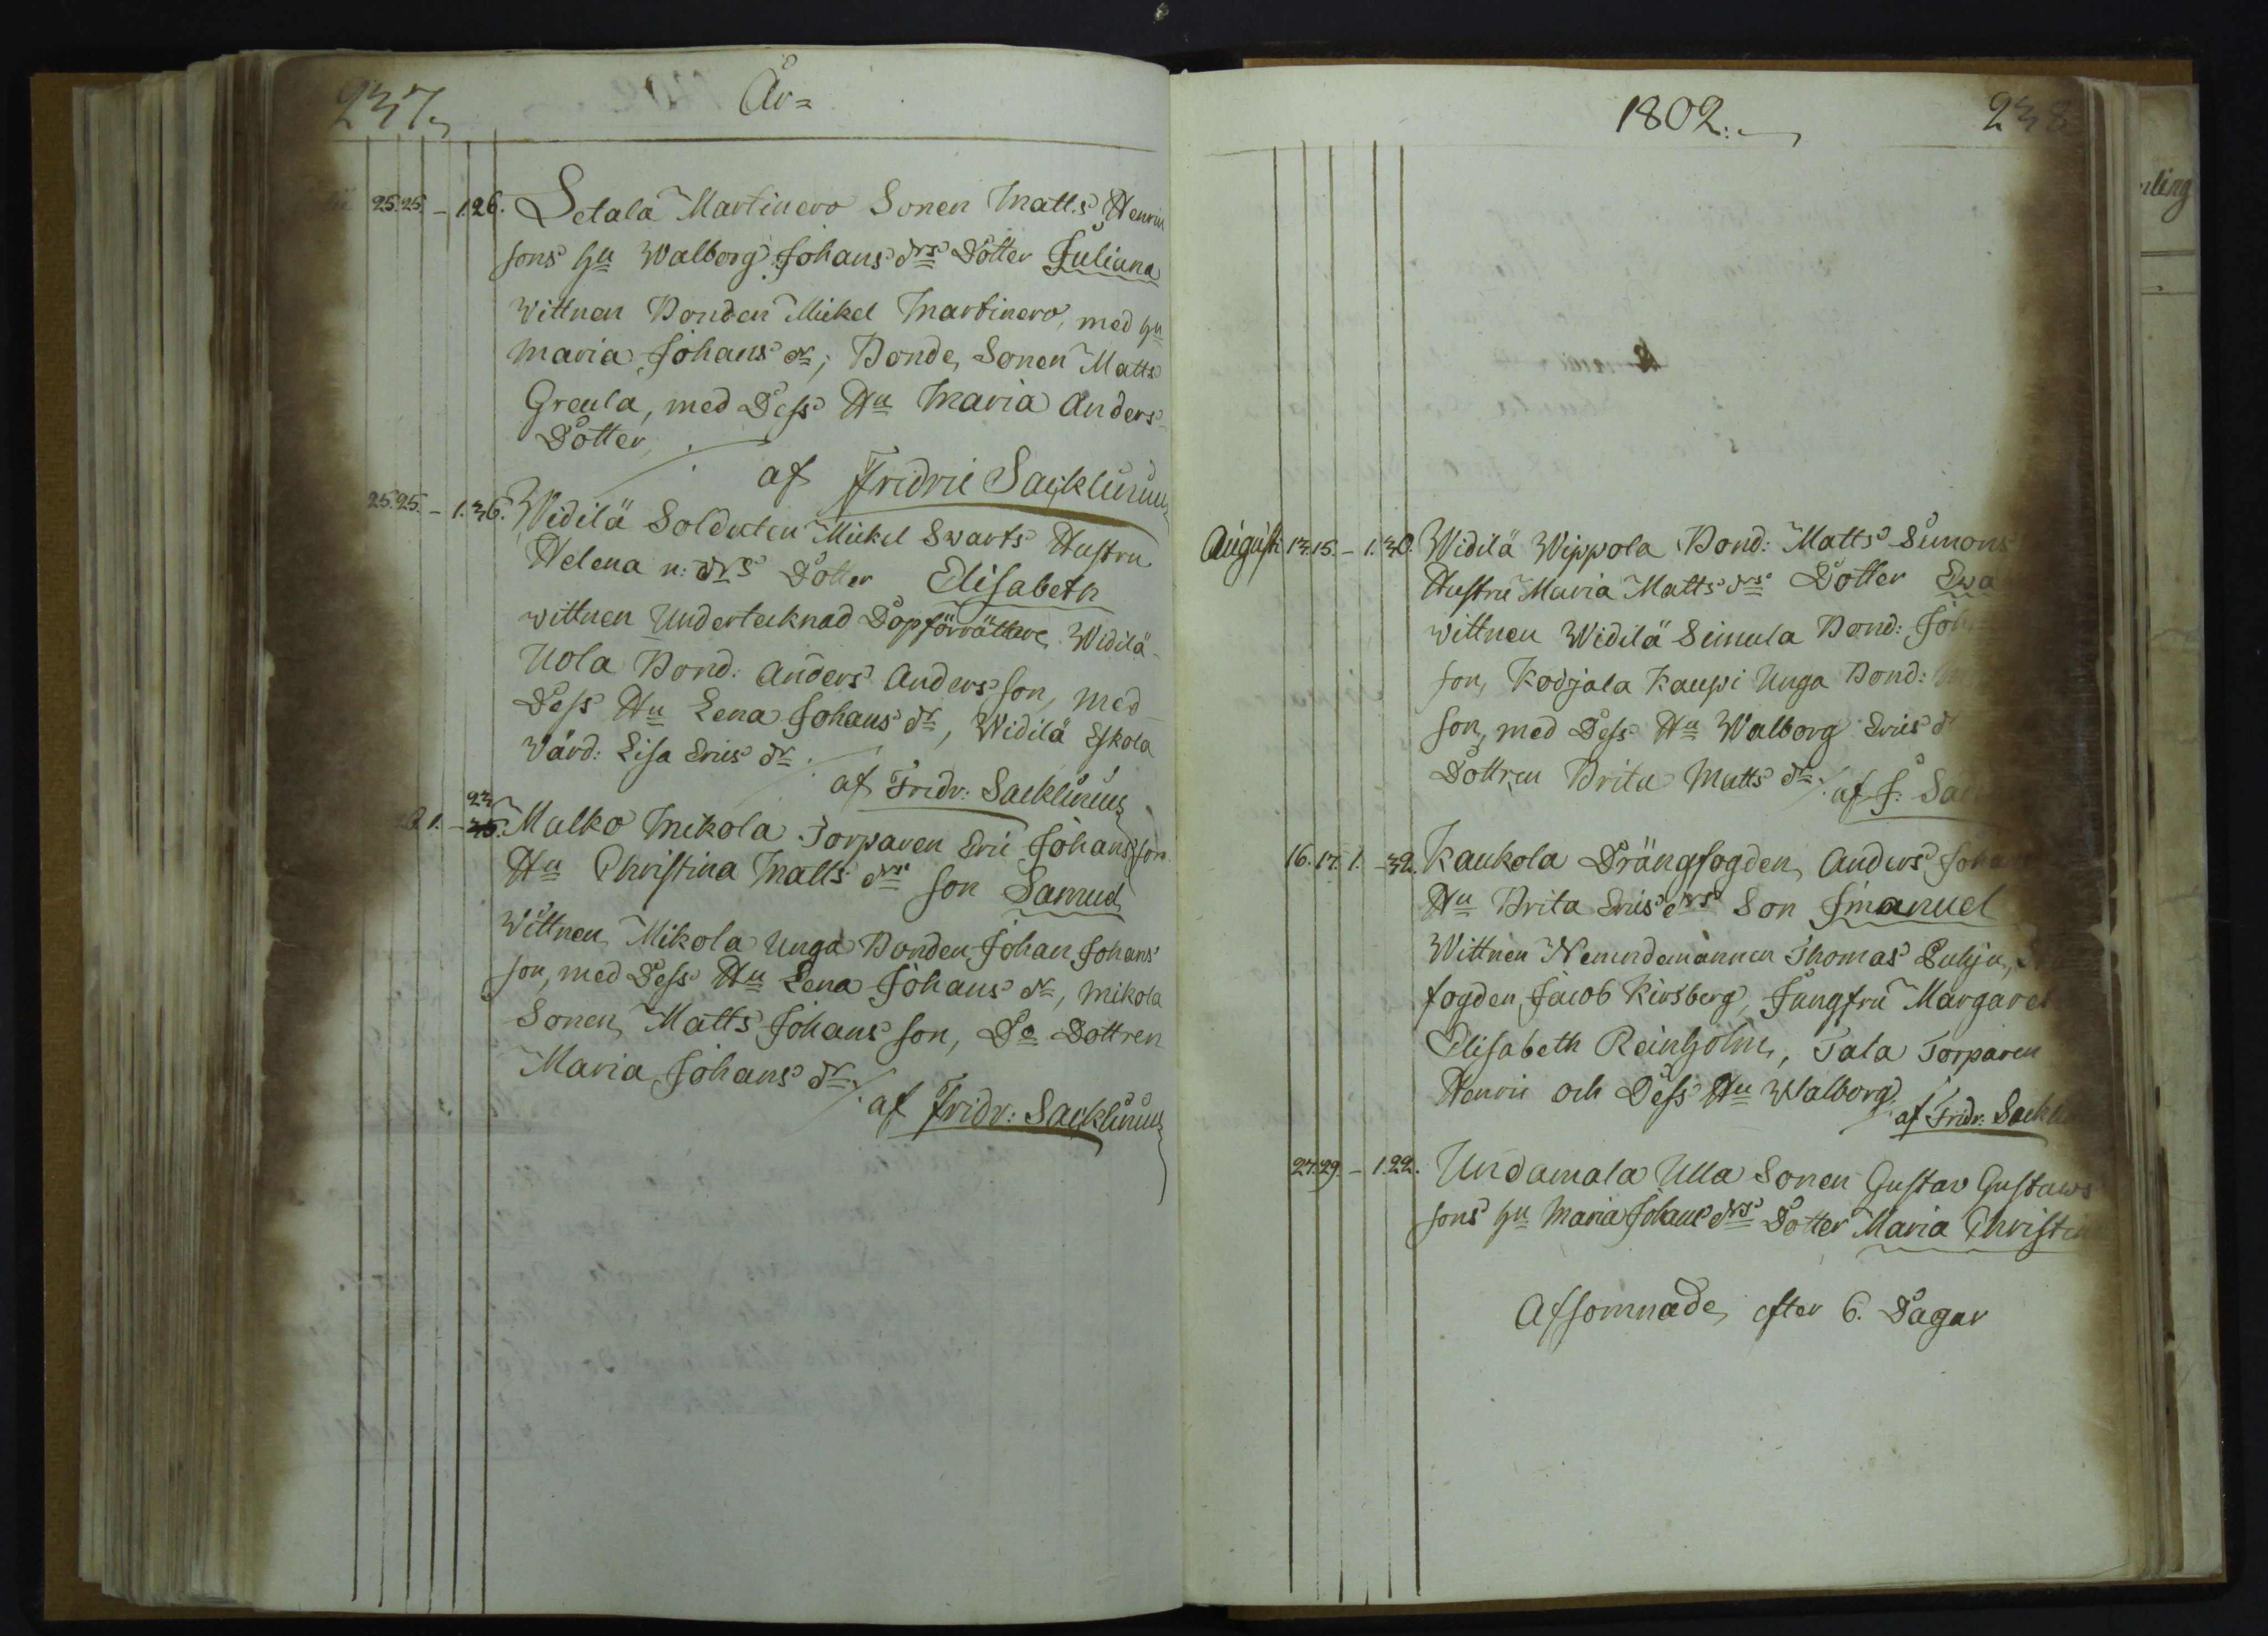 237.
År=
25. 25. - 1. 26. Setala Martinero Sonen Matts Henric
sons hu Walborg Johans drs Dotter Juliana
Wittnen Bonden Mickel Martinero, med hu
Maria Johans dr; Bonde Sonen Matts
Greula, med Dess Hu Maria Anders
Dotter
af Fridric Sacklinius
25. 25. - 1. 36. Widilä Soldaten Mickel Swarts Hustru
Helena n: drs Dotter Elisabeth
wittnen Undertecknad Dopförrättare Widilä
Uola Bond: Anders Anders son, med
Dess Hu Lena Johans dr, Widilä Eskola
Wärd: Lisa Erics dr
af Fridr: Sacklinius
23
1. - Malko Mikola Torparen Eric Johans son
Hu Christina Matts drs son Samuel
Wittnen Mikola Unga Bonden Johan Johans
son, med Dess Hu Lena Johans dr, Mikola
Sonen Matts Johans son, Do Dottren
Maria Johans dr
af Fridr: Sacklinius
1802.
238
Augusti 13. 15. - 1. 30. Widilä Wippola Bond: Matts Simons
Hustru Maria Matts drs Dotter Ewa
wittnen Widilä Seimula Bond: Joh
son, Kodjala Kaupi Unga Bond:
son, med Dess Hu Walborg Erics d
Dottren Brita Matts dr af F: Sac
16. 17. 1. - 32. Kaukola Drängfogden Anders Johan
Hu Brita Erics drs Son Imanuel
Wittnen Nemndemannen Thomas Pukju,
fogden Jacob Kirsberg, Jungfru Margaret
Elisabeth Reinholm, Tala Torparen
Henric och Dess Hu Walborg
af Fridr: Sackli
27. 29. - 1. 22. Undamala Ulla Sonen Gustav Gustaws
sons hu Maria Johans drs Dotter Maria Christin
Afsomnade efter 6. Dagar